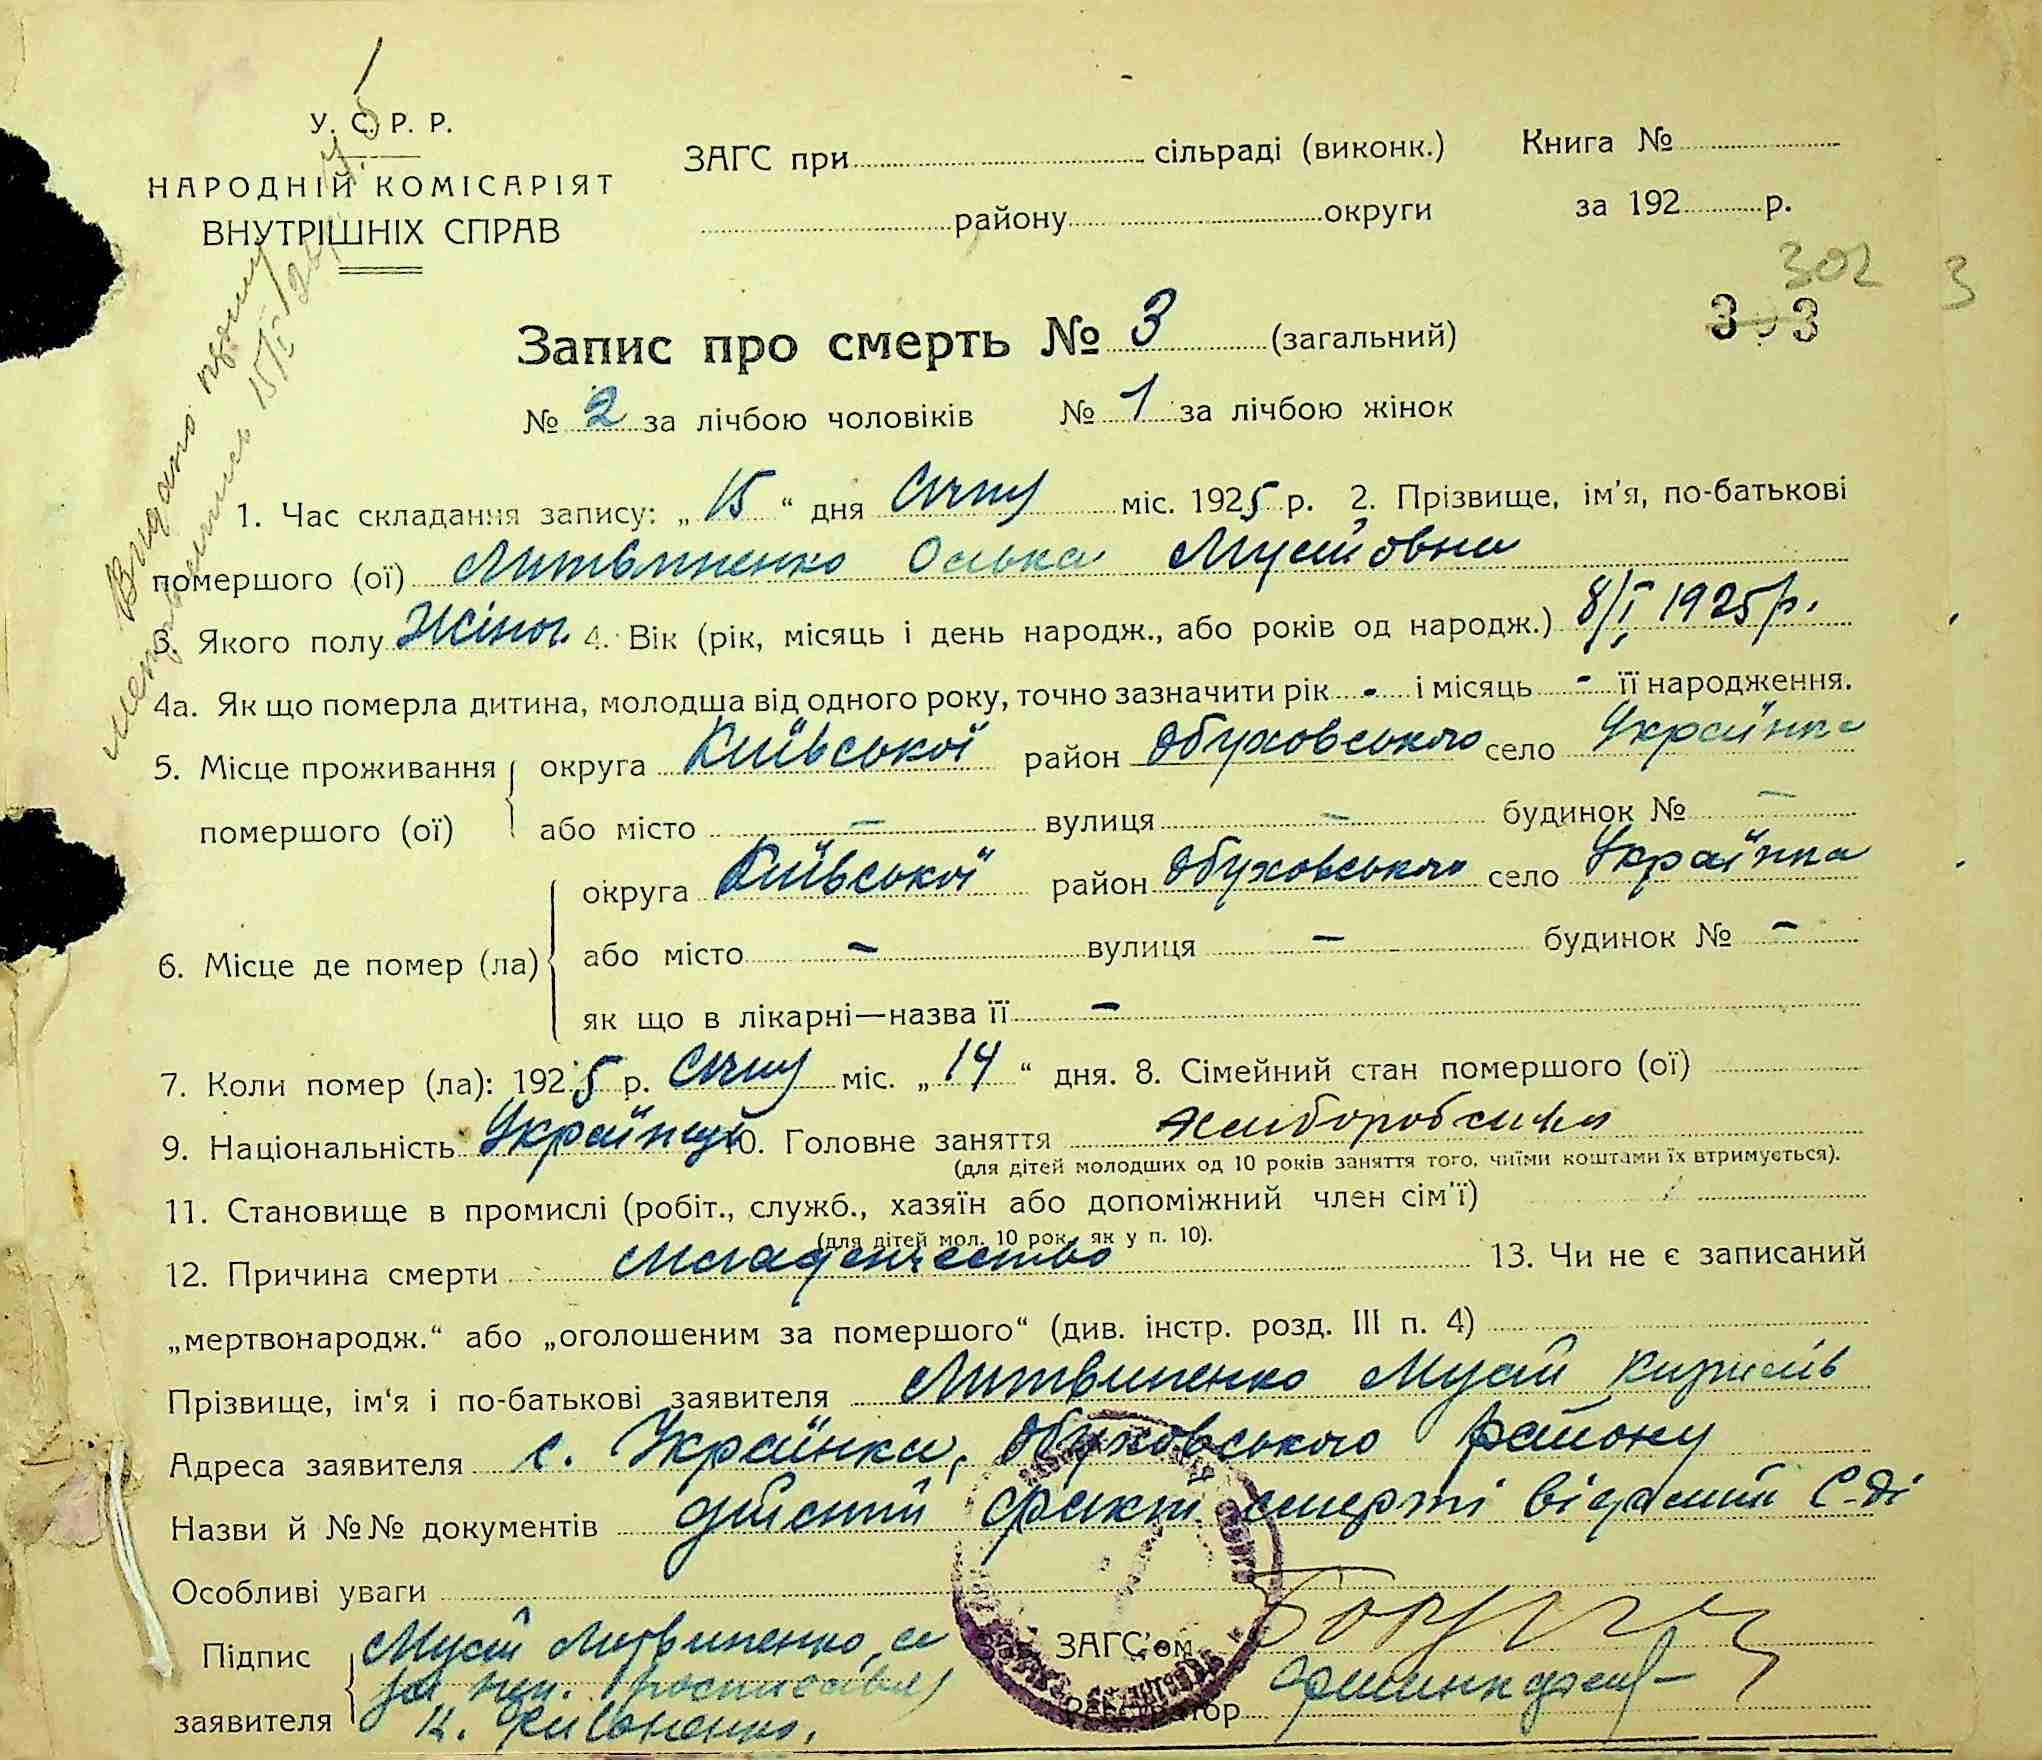 У. С. Р. Р.
НАРОДНІЙ КОМІСАРІЯТ
ВНУТРІШНІХ СПРАВ
ЗАГС при сільраді (виконк.) Книга №
району округи за 192 р.
302 3
3 3
Запис про смерть № 3 (загальний)
№ 2 за лічбою чоловіків № 1 за лічбою жінок
Видано
1. Час складання запису: „15“ дня Січня міс. 1925 р. 2. Прізвище, ім'я, по-батькові
помершого (ої) Литвиненко Мусіїовна
3. Якого полу Жіноч. 4. Вік (рік, місяць і день народж., або років од народж.) 8/I 1925 р.
4а. Як що померла дитина, молодша від одного року, точно зазначити рік - і місяць - її народження.
5. Місце проживання помершого (ої) округа Київської район Обуховського село Українка
або місто - вулиця - будинок № -
6. Місце де помер (ла) округа Київської район Обуховського село Українка
або місто - вулиця - будинок № -
як що в лікарні—назва її -
7. Коли помер (ла): 1925 р. Січня міс. „14“ дня. 8. Сімейний стан помершого (ої)
9. Національність 10. Головне заняття
(для дітей молодших од 10 років заняття того, чиїми коштами їх втримується).
11. Становище в промислі (робіт., служб., хазяїн або допоміжний член сім'ї)
(для дітей мол. 10 рок., як у п. 10).
12. Причина смерти младенчество 13. Чи не є записаний
„мертвонародж.“ або „оголошеним за помершого“ (див. інстр. розд. III п. 4)
Прізвище, ім'я і по-батькові заявителя Литвиненко Мусій Кирилів
Адреса заявителя с. Українка, Обуховського району
Назви й №№ документів факт смерті С-ді
Особливі уваги
Підпис заявителя Мусій Литвиненко, а
за
К.
ЗАГС'ом